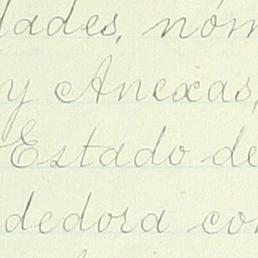 dades, nom
y Anexas,
Estado de
dedora con